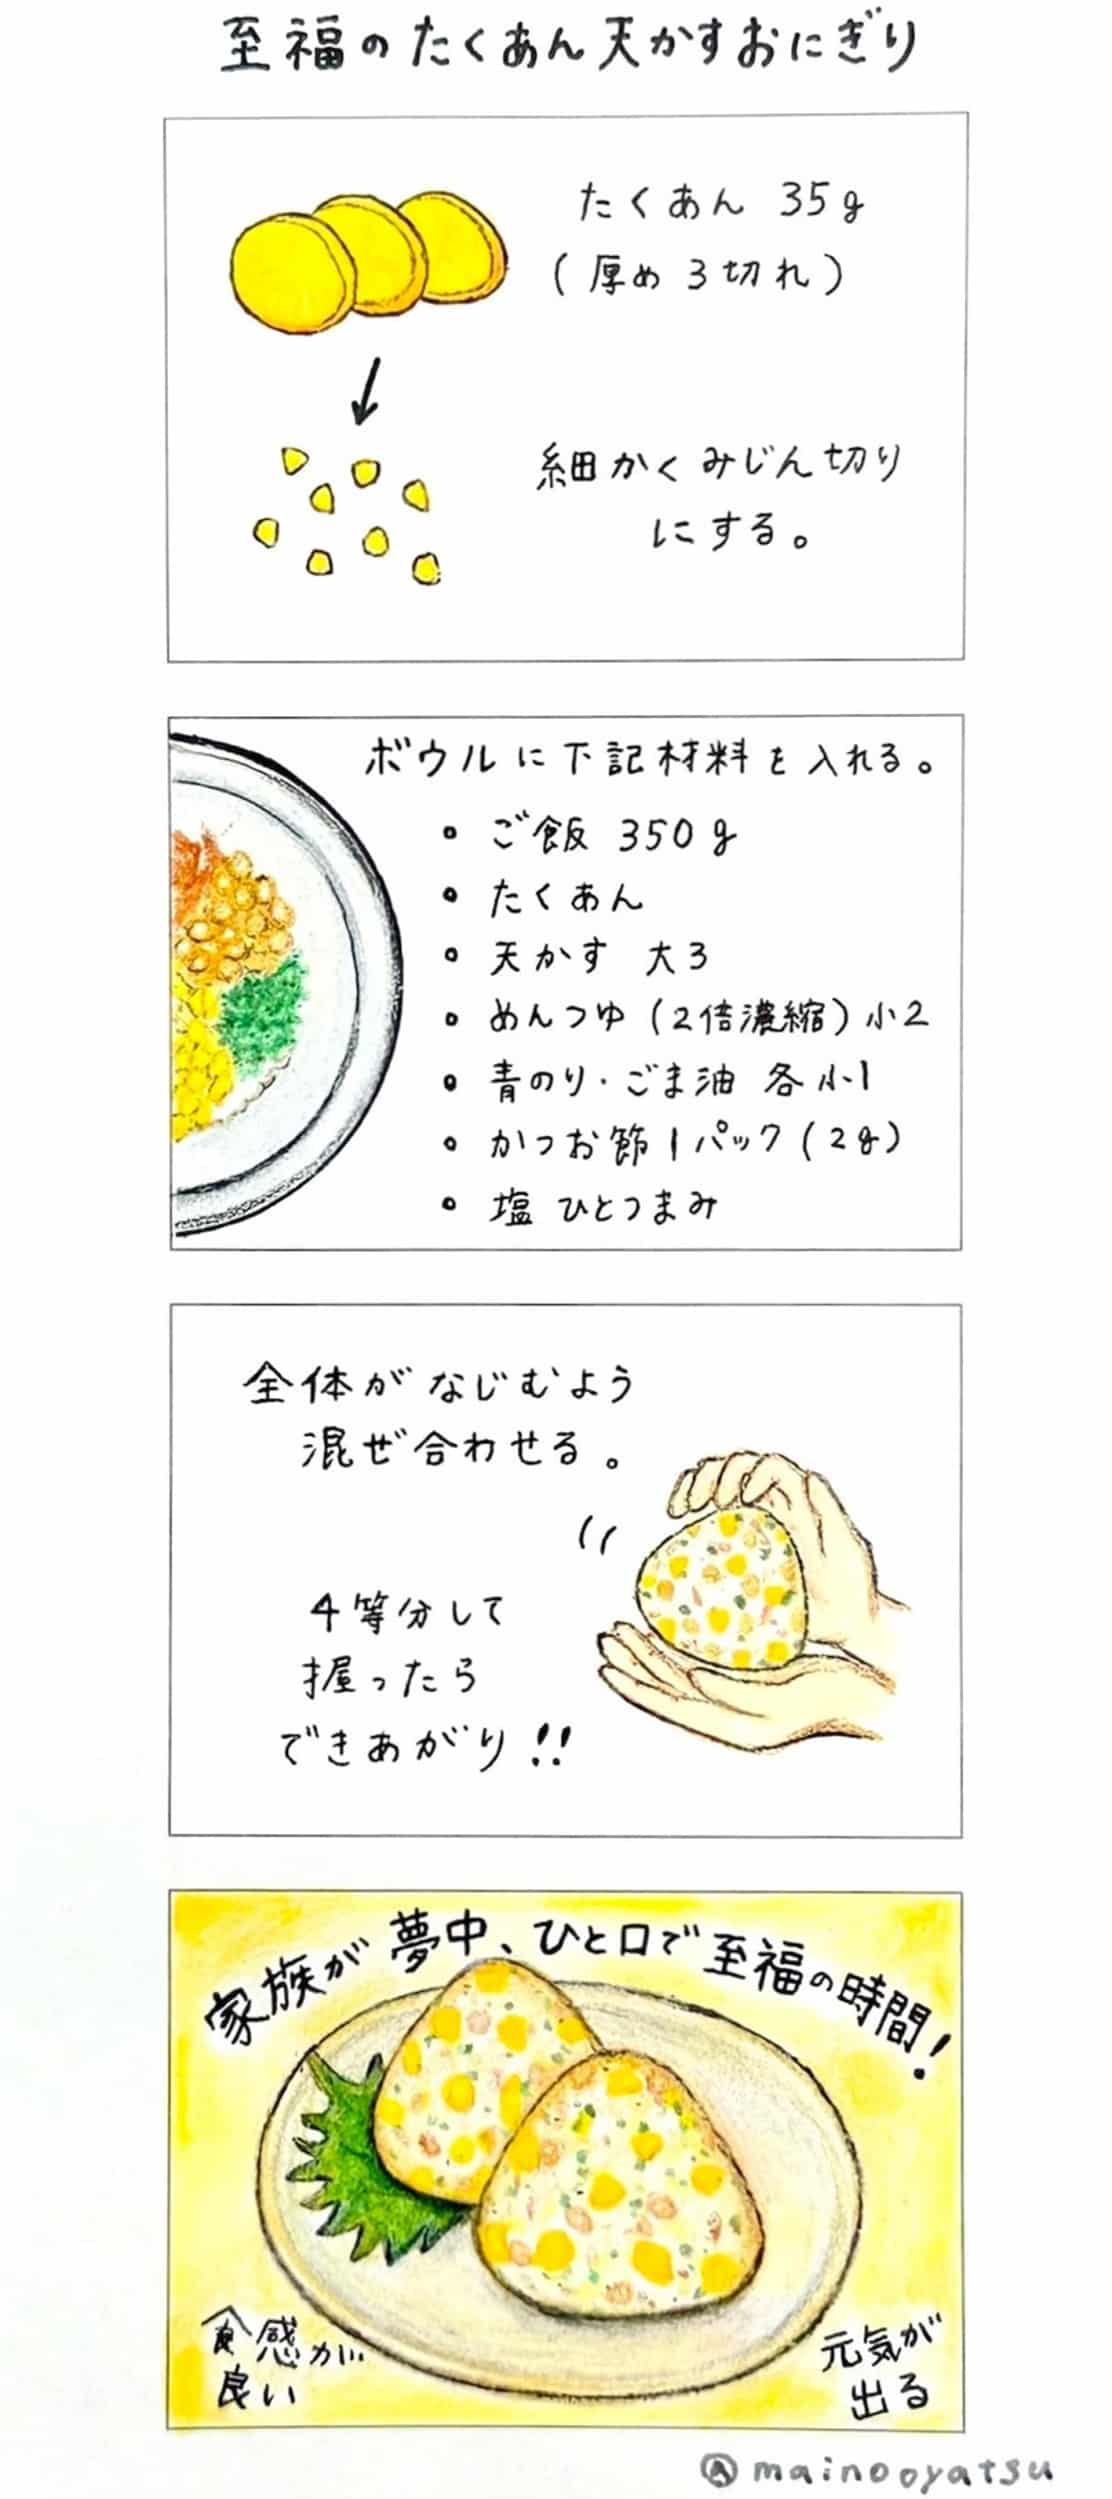 至福のたくあん天かすおにぎり
たくあん 35g
(厚め 3切れ)
細かくみじん切り
にする。
ボウルに下記材料を入れる。
• ご飯 350g
• たくあん
• 天かす 大3
• めんつゆ (2倍濃縮) 小2
• 青のり・ごま油 各小1
• かつお節 1パック (2g)
• 塩 ひとつまみ
全体がなじむよう
混ぜ合わせる。
4等分して
握ったら
できあがり!!
家族が夢中、ひと口で至福の時間!
食感が
良い
元気が
出る
@mainooyatsu